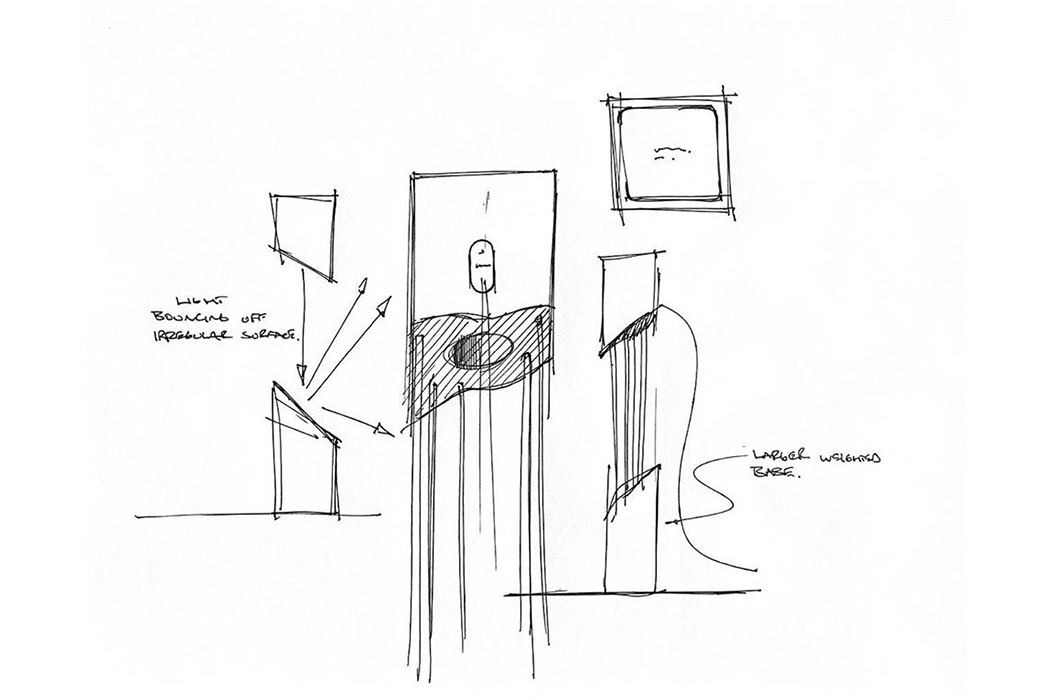 LIGHT
BOUNCING OFF
IRREGULAR SURFACE.
LARGER WEIGHED
BASE.